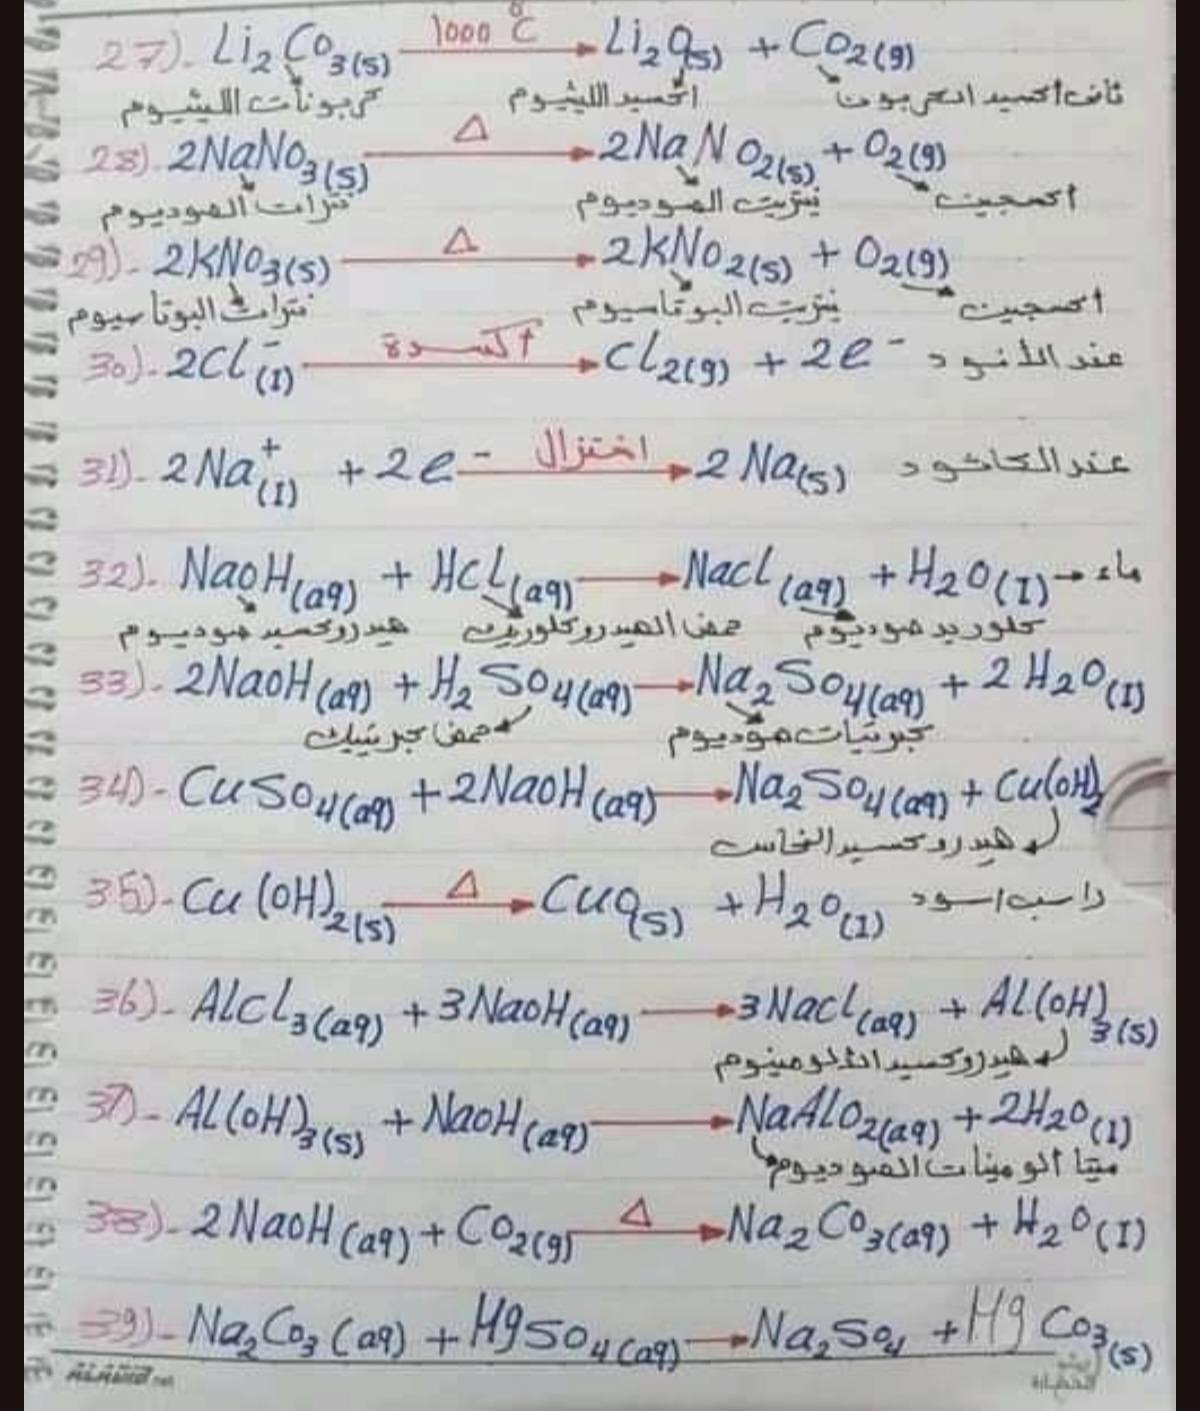 27)- Li₂Co₃(s) 1000 °C → Li₂O(s) + Co₂(g)
كربونات الليثيوم اكسيد الليثيوم ثاني اكسيد الكربون
28)- 2NaNo₃(s) Δ → 2NaNO₂(s) + O₂(g)
نترات الصوديوم نيتريت الصوديوم اكسجين
29)- 2KNo₃(s) Δ → 2KNo₂(s) + O₂(g)
نترات البوتاسيوم نيتريت البوتاسيوم اكسجين
30)- 2Cl⁻(I) أكسدة → Cl₂(g) + 2e⁻ عند الأنود
31)- 2Na⁺(I) + 2e⁻ اختزال → 2Na(s) عند الكاثود
32)- NaoH(aq) + HCL(aq) → Nacl(aq) + H₂O(I) → ماء
هيدروكسيد صوديوم حمض الهيدروكلوريك كلوريد صوديوم
33)- 2NaoH(aq) + H₂So₄(aq) → Na₂So₄(aq) + 2H₂O(I)
حمض كبريتيك كبريتات صوديوم
34)- CuSo₄(aq) + 2NaoH(aq) → Na₂So₄(aq) + Cu(oH)₂
هيدروكسيد النحاس
35)- Cu(oH)₂(s) Δ → CuO(s) + H₂O(I) راسب اسود
36)- AlCl₃(aq) + 3NaoH(aq) → 3Nacl(aq) + Al(oH)₃(s)
هيدروكسيد الألومينوم
37)- Al(oH)₃(s) + NaoH(aq) → NaAlO₂(aq) + 2H₂O(I)
ميتا ألومينات الصوديوم
38)- 2NaoH(aq) + CO₂(g) Δ → Na₂Co₃(aq) + H₂O(I)
39)- Na₂Co₃(aq) + HgSo₄(aq) → Na₂So₄ + Hg Co₃(s)